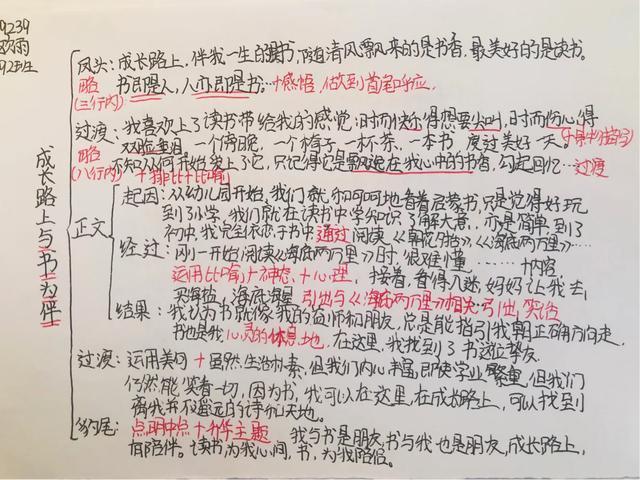 09239
欧雨
成长路上与"书"为伴
凤头：成长路上，伴我一生的是书，随清风飘来的是书香，最美好的是读书。
略 书即是人，人亦即是书。十感悟，做到首尾呼应
(三行内)
过渡：我喜欢上了读书带给我的感觉：时而快乐得想要尖叫，时而伤心得
略 双眼垂泪。一个傍晚，一个椅子，一杯茶，一本书，度过美好一天。
(八行内) 不知从何开始爱上了它，只记得它是飘逸在我心中的书香，勾起回忆…过渡
十排比十比喻
正文
起因：从幼儿园开始，我们就和呵呵地看着启蒙书，只是觉得好玩
到了小学，我们就在读书中学知识，了解大意，亦是简单，到了
初中，我完全依恋于书中，通过阅读《朝花夕拾》《海底两万里》……
经过：刚一开始阅读《海底两万里》时，很难懂……十内容，
运用比喻十神态，十心理，接着，看得入迷，妈妈让我去
买海盐，海底海星 引出与《海底两万里》相关，引出笑话
结果：我认为书就像我的益师和朋友，总是能指引我朝正确方向走。
书也是我心灵的休息地，在这里，我找到了书这位挚友。
过渡：运用美句十虽然生活朴素，但我们内心丰富，即使学业繁重，但我们
仍然能笑看一切，因为书，我可以在这里，在成长路上，可以找到
离我并不遥远的诗和天地。
豹尾：点明中点十升华主题 我与书是朋友，书与我也是朋友，成长路上，
有陪伴。读书，为我心间，书，为我陪侣。